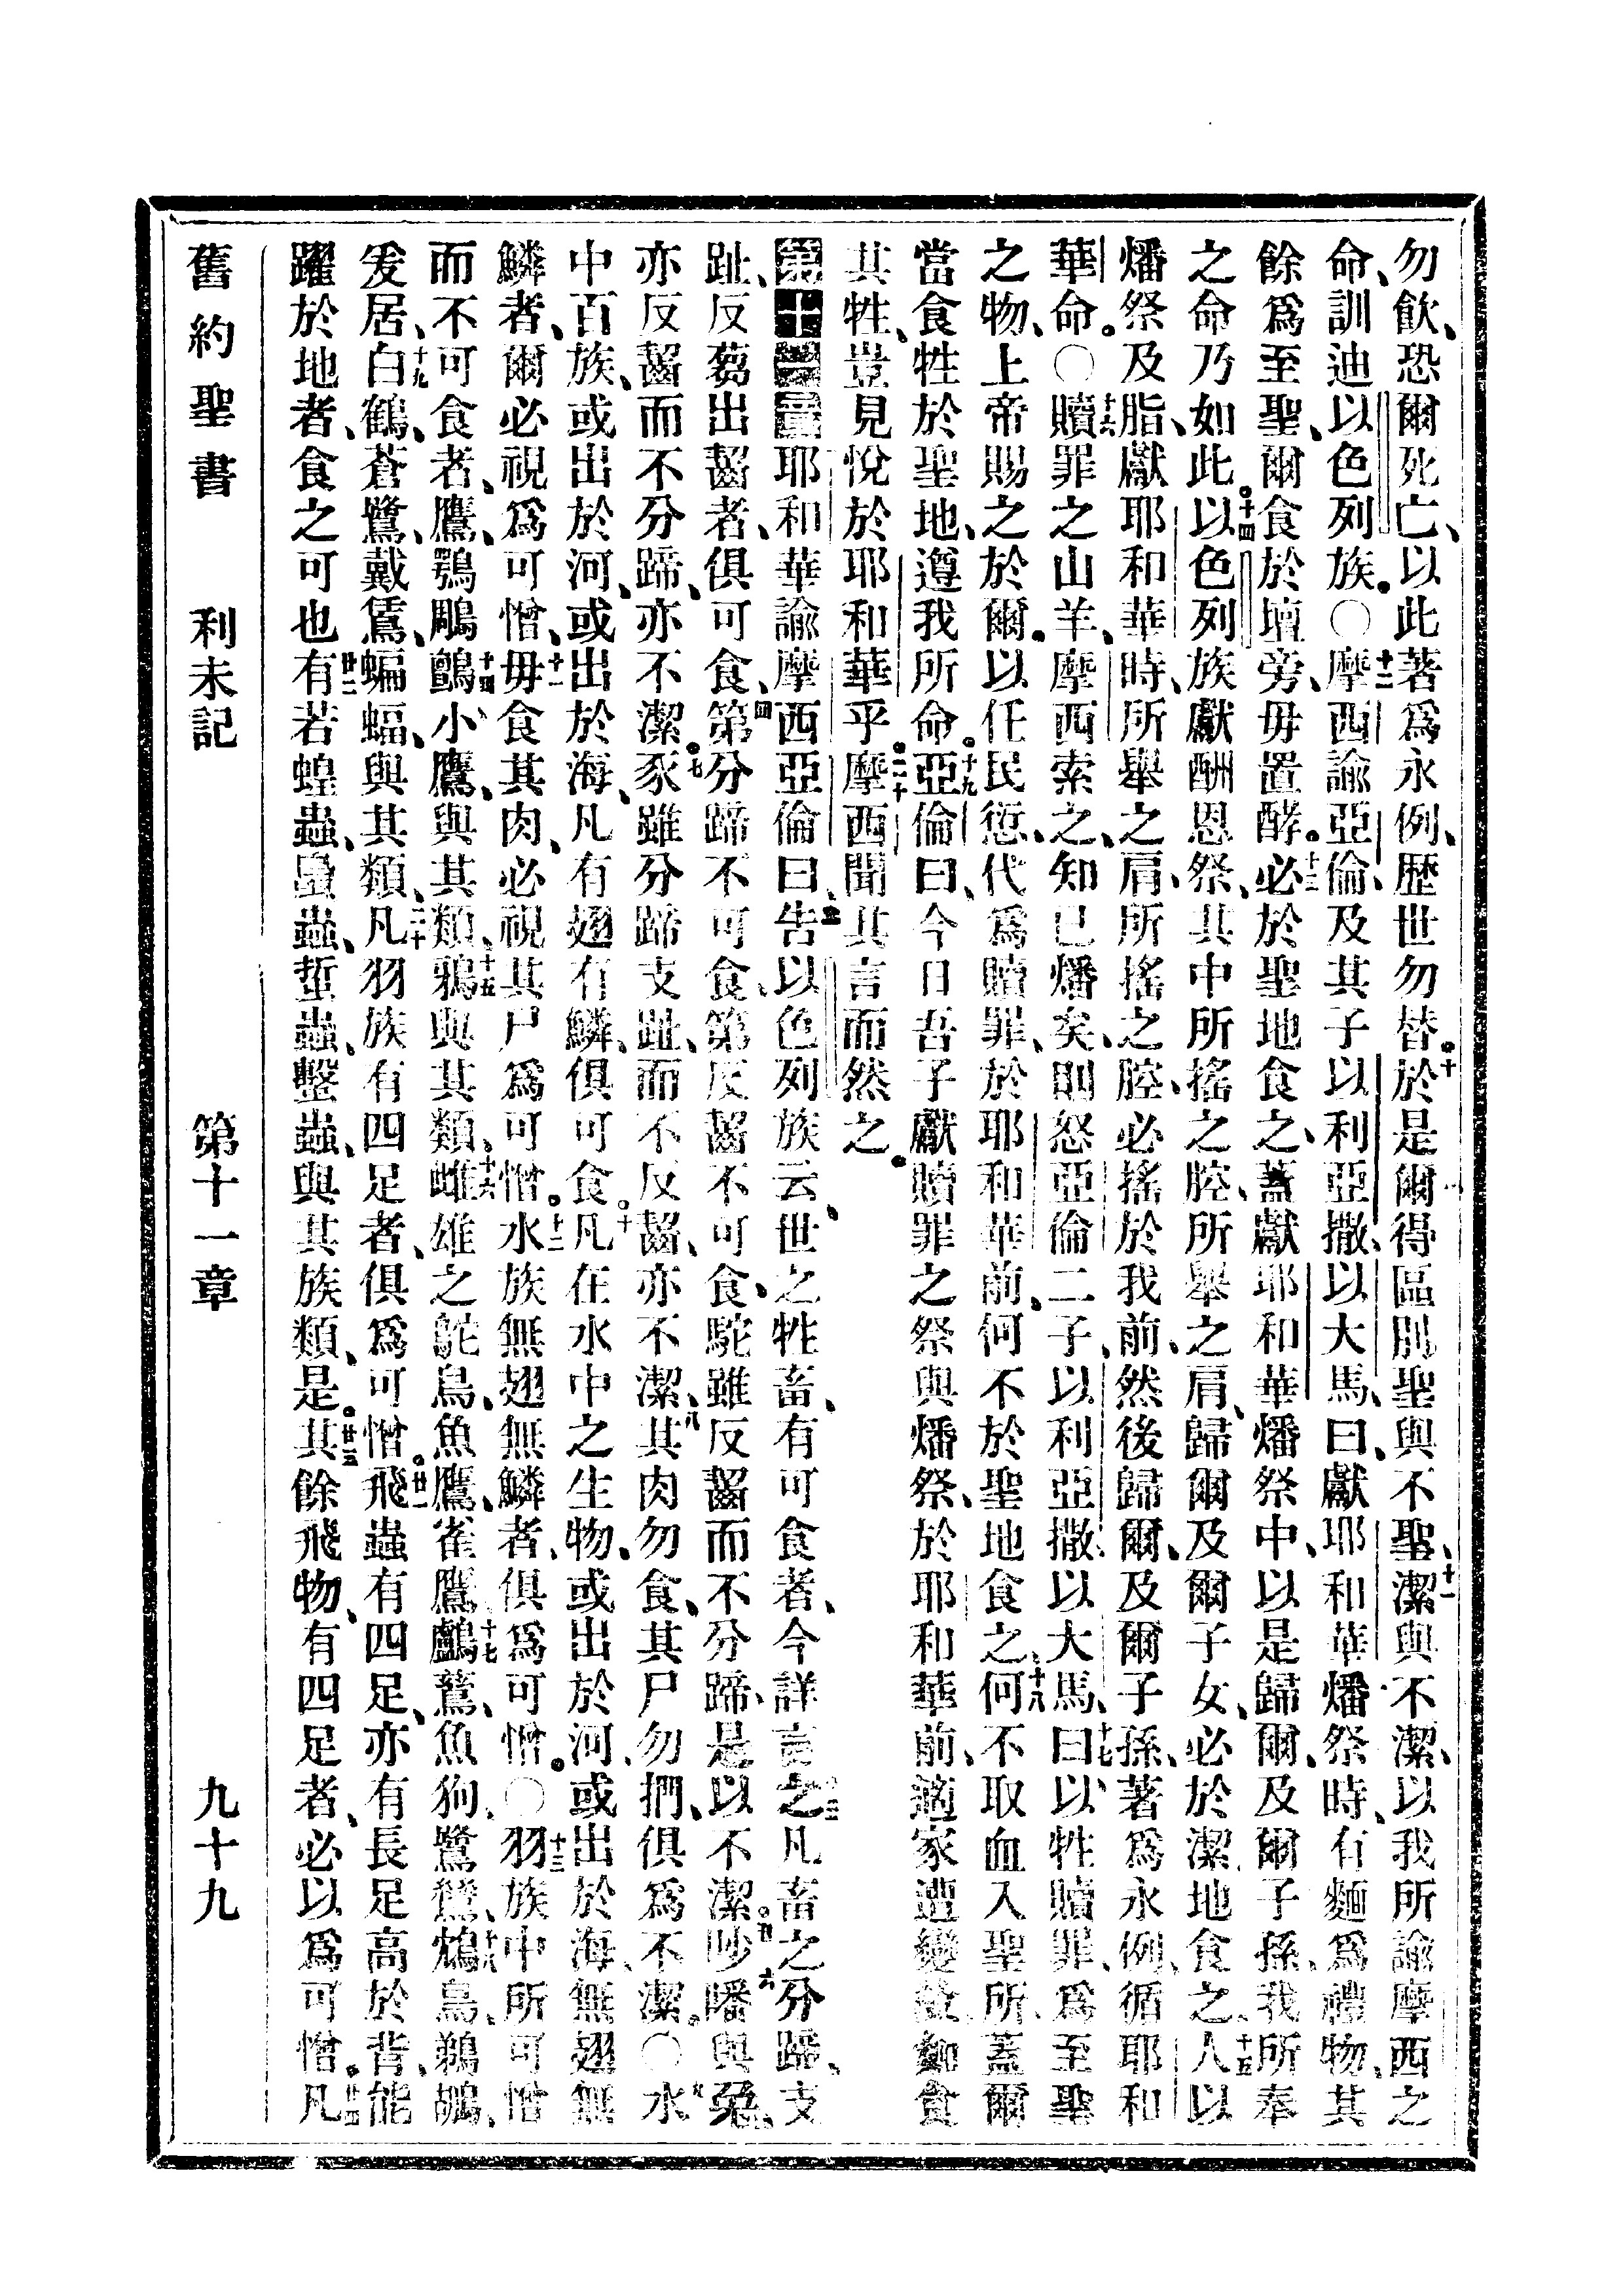 勿飲、恐爾死亡、以此著爲永例、歷世勿替。十於是爾得區別聖與不聖、十一潔與不潔、以我所諭摩西之
命、訓迪以色列族。〇十二摩西諭亞倫、及其子以利亞撒、以大馬、曰、獻耶和華燔祭時、有麵爲禮物、其
餘爲至聖、爾食於壇旁、毋置酵。十三必於聖地食之、蓋獻耶和華燔祭中、以是歸爾、及爾子孫、我所奉
之命乃如此。十四以色列族獻酬恩祭、其中所搖之腔、所舉之肩、歸爾及爾子女、必於潔地食之、十五人以
燔祭及脂、獻耶和華時、所舉之肩、所搖之腔、必搖於我前、然後歸爾、及爾子孫、著爲永例、循耶和
華命。〇十六贖罪之山羊、摩西索之、知已燔矣、則怒亞倫二子、以利亞撒、以大馬、十七曰、以牲贖罪、爲至聖
之物、上帝賜之於爾。以任民愆、代爲贖罪、於耶和華前、何不於聖地食之、十八何不取血入聖所、蓋爾
當食牲於聖地、遵我所命。十九亞倫曰、今日吾子獻贖罪之祭與燔祭、於耶和華前、適家遭變故、如食
其牲、豈見悅於耶和華乎。二十摩西聞其言而然之。
第十一章耶和華諭摩西亞倫曰、二告以色列族云、世之牲畜、有可食者、今詳言之、三凡畜之分蹄、支
趾、反芻出齧者、俱可食、四第分蹄不可食、第反齧不可食、駝雖反齧而不分蹄、是以不潔。五𪕅六與兔、
亦反齧而不分蹄、亦不潔。七豕雖分蹄支趾、而不反齧、亦不潔、八其肉勿食、其尸勿捫、俱爲不潔。〇九水
中百族、或出於河、或出於海、凡有翅有鱗、俱可食。十凡在水中之生物、或出於河、或出於海、無翅無
鱗者、爾必視爲可憎、十一毋食其肉、必視其尸爲可憎。十二水族無翅無鱗者、俱爲可憎。〇十三羽族中所可憎
而不可食者、鷹、鶚鵰、十四鸇、小鷹、與其類、十五鴉與其類、十六雌雄之鴕鳥、魚鷹、雀鷹、十七鸕鶿、魚狗、鷺鷥、十八鴆鳥、鵜鶘、
爰居、十九白鶴、蒼鷺、戴鵀、蝙蝠、與其類、二十凡羽族有四足者、俱爲可憎。廿一飛蟲有四足、亦有長足高於背、能
躍於地者、食之可也、廿二有若蝗蟲、蟊蟲、蜇蟲、蟿蟲、與其族類、是。廿三其餘飛物、有四足者、必以爲可憎。廿四凡
舊約聖書　利未記　第十一章　九十九